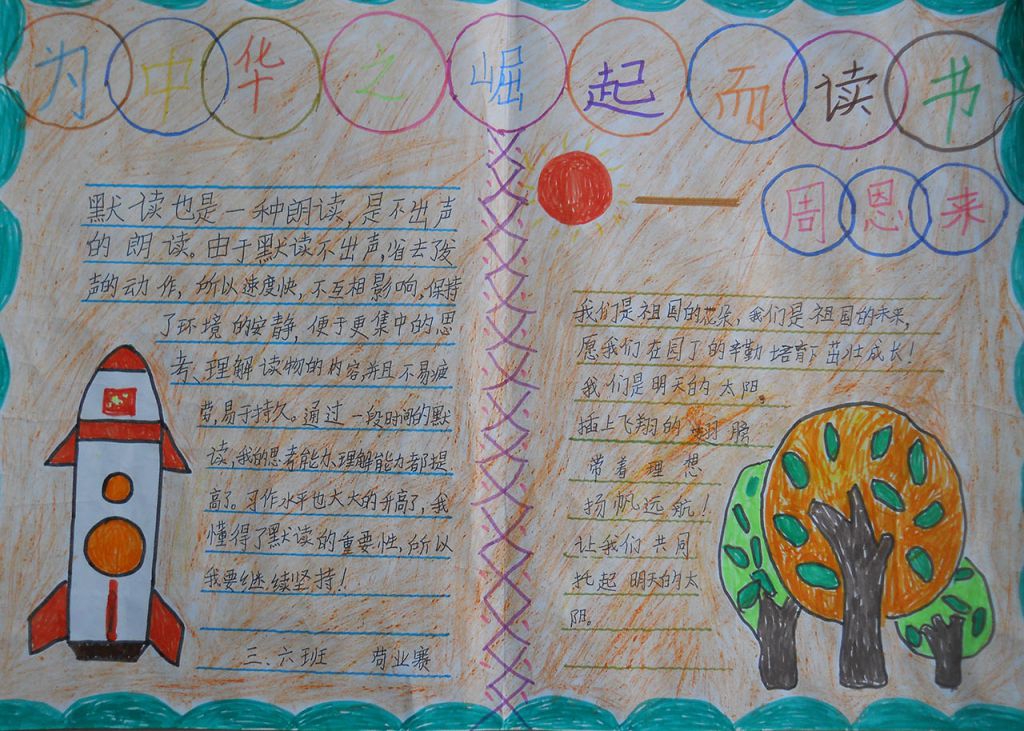 为中华之崛起而读书
周恩来
默读也是一种朗读,是不出声
的朗读。由于默读不出声,省去发
声的动作,所以速度快,不互相影响,保持
了环境的安静,便于更集中的思
考、理解读物的内容,并且不易疲
劳,易于持久。通过一段时间的默
读,我的思考能力、理解能力都提
高了。习作水平也大大的升高了,我
懂得了默读的重要性,所以
我要继续坚持!
三、六班 苟业赛
我们是祖国的花朵,我们是祖国的未来,
愿我们在园丁的辛勤培育下茁壮成长!
我们是明天的太阳。
插上飞翔的翅膀
带着理想
扬帆远航!
让我们共同
托起明天的太
阳。